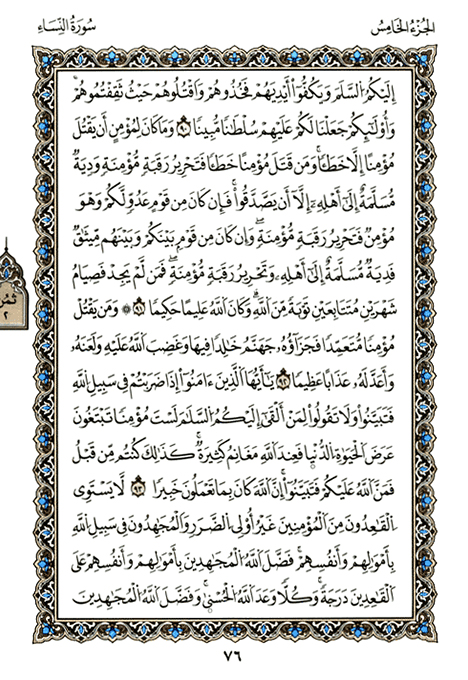 الجزء الخامس
سورة النساء
إِلَيْكُمُ السَّلَمَ وَيَكُفُّوا أَيْدِيَهُمْ فَخُذُوهُمْ وَاقْتُلُوهُمْ حَيْثُ ثَقِفْتُمُوهُمْ
وَأُوْلَٰئِكُمْ جَعَلْنَا لَكُمْ عَلَيْهِمْ سُلْطَٰنًا مُّبِينًا ٩٠ وَمَا كَانَ لِمُؤْمِنٍ أَن يَقْتُلَ
مُؤْمِنًا إِلَّا خَطَـًٔا وَمَن قَتَلَ مُؤْمِنًا خَطَـًٔا فَتَحْرِيرُ رَقَبَةٍ مُّؤْمِنَةٍ وَدِيَةٌ
مُّسَلَّمَةٌ إِلَىٰ أَهْلِهِ إِلَّا أَن يَصَّدَّقُوا فَإِن كَانَ مِن قَوْمٍ عَدُوٍّ لَّكُمْ وَهْوَ
مُؤْمِنٌ فَتَحْرِيرُ رَقَبَةٍ مُّؤْمِنَةٍ وَإِن كَانَ مِن قَوْمٍ بَيْنَكُمْ وَبَيْنَهُم مِّيثَٰقٌ
فَدِيَةٌ مُّسَلَّمَةٌ إِلَىٰ أَهْلِهِ وَتَحْرِيرُ رَقَبَةٍ مُّؤْمِنَةٍ فَمَن لَّمْ يَجِدْ فَصِيَامُ
شَهْرَيْنِ مُتَتَابِعَيْنِ تَوْبَةً مِّنَ اللَّهِ وَكَانَ اللَّهُ عَلِيمًا حَكِيمًا ٩١ ۞ وَمَن يَقْتُلْ
مُؤْمِنًا مُّتَعَمِّدًا فَجَزَآؤُهُ جَهَنَّمُ خَٰلِدًا فِيهَا وَغَضِبَ اللَّهُ عَلَيْهِ وَلَعَنَهُ
وَأَعَدَّ لَهُ عَذَابًا عَظِيمًا ٩٢ يَٰأَيُّهَا الَّذِينَ ءَامَنُوا إِذَا ضَرَبْتُمْ فِي سَبِيلِ اللَّهِ
فَتَبَيَّنُوا وَلَا تَقُولُوا لِمَنْ أَلْقَىٰ إِلَيْكُمُ السَّلَمَ لَسْتَ مُؤْمِنًا تَبْتَغُونَ
عَرَضَ الْحَيَوٰةِ الدُّنْيَا فَعِندَ اللَّهِ مَغَانِمُ كَثِيرَةٌ كَذَٰلِكَ كُنتُم مِّن قَبْلُ
فَمَنَّ اللَّهُ عَلَيْكُمْ فَتَبَيَّنُوا إِنَّ اللَّهَ كَانَ بِمَا تَعْمَلُونَ خَبِيرًا ٩٣ لَّا يَسْتَوِي
الْقَٰعِدُونَ مِنَ الْمُؤْمِنِينَ غَيْرَ أُوْلِي الضَّرَرِ وَالْمُجَٰهِدُونَ فِي سَبِيلِ اللَّهِ
بِأَمْوَٰلِهِمْ وَأَنفُسِهِمْ فَضَّلَ اللَّهُ الْمُجَٰهِدِينَ بِأَمْوَٰلِهِمْ وَأَنفُسِهِمْ عَلَى
الْقَٰعِدِينَ دَرَجَةً وَكُلًّا وَعَدَ اللَّهُ الْحُسْنَىٰ وَفَضَّلَ اللَّهُ الْمُجَٰهِدِينَ
ثمن
٢
٧٦